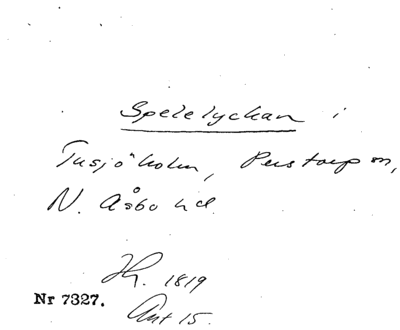 Spelelyckan i
Tusjöholm, Perstorp sn,
N. Åsbo hd.
Hr. 1819
Nr 7327.
Ant 15.